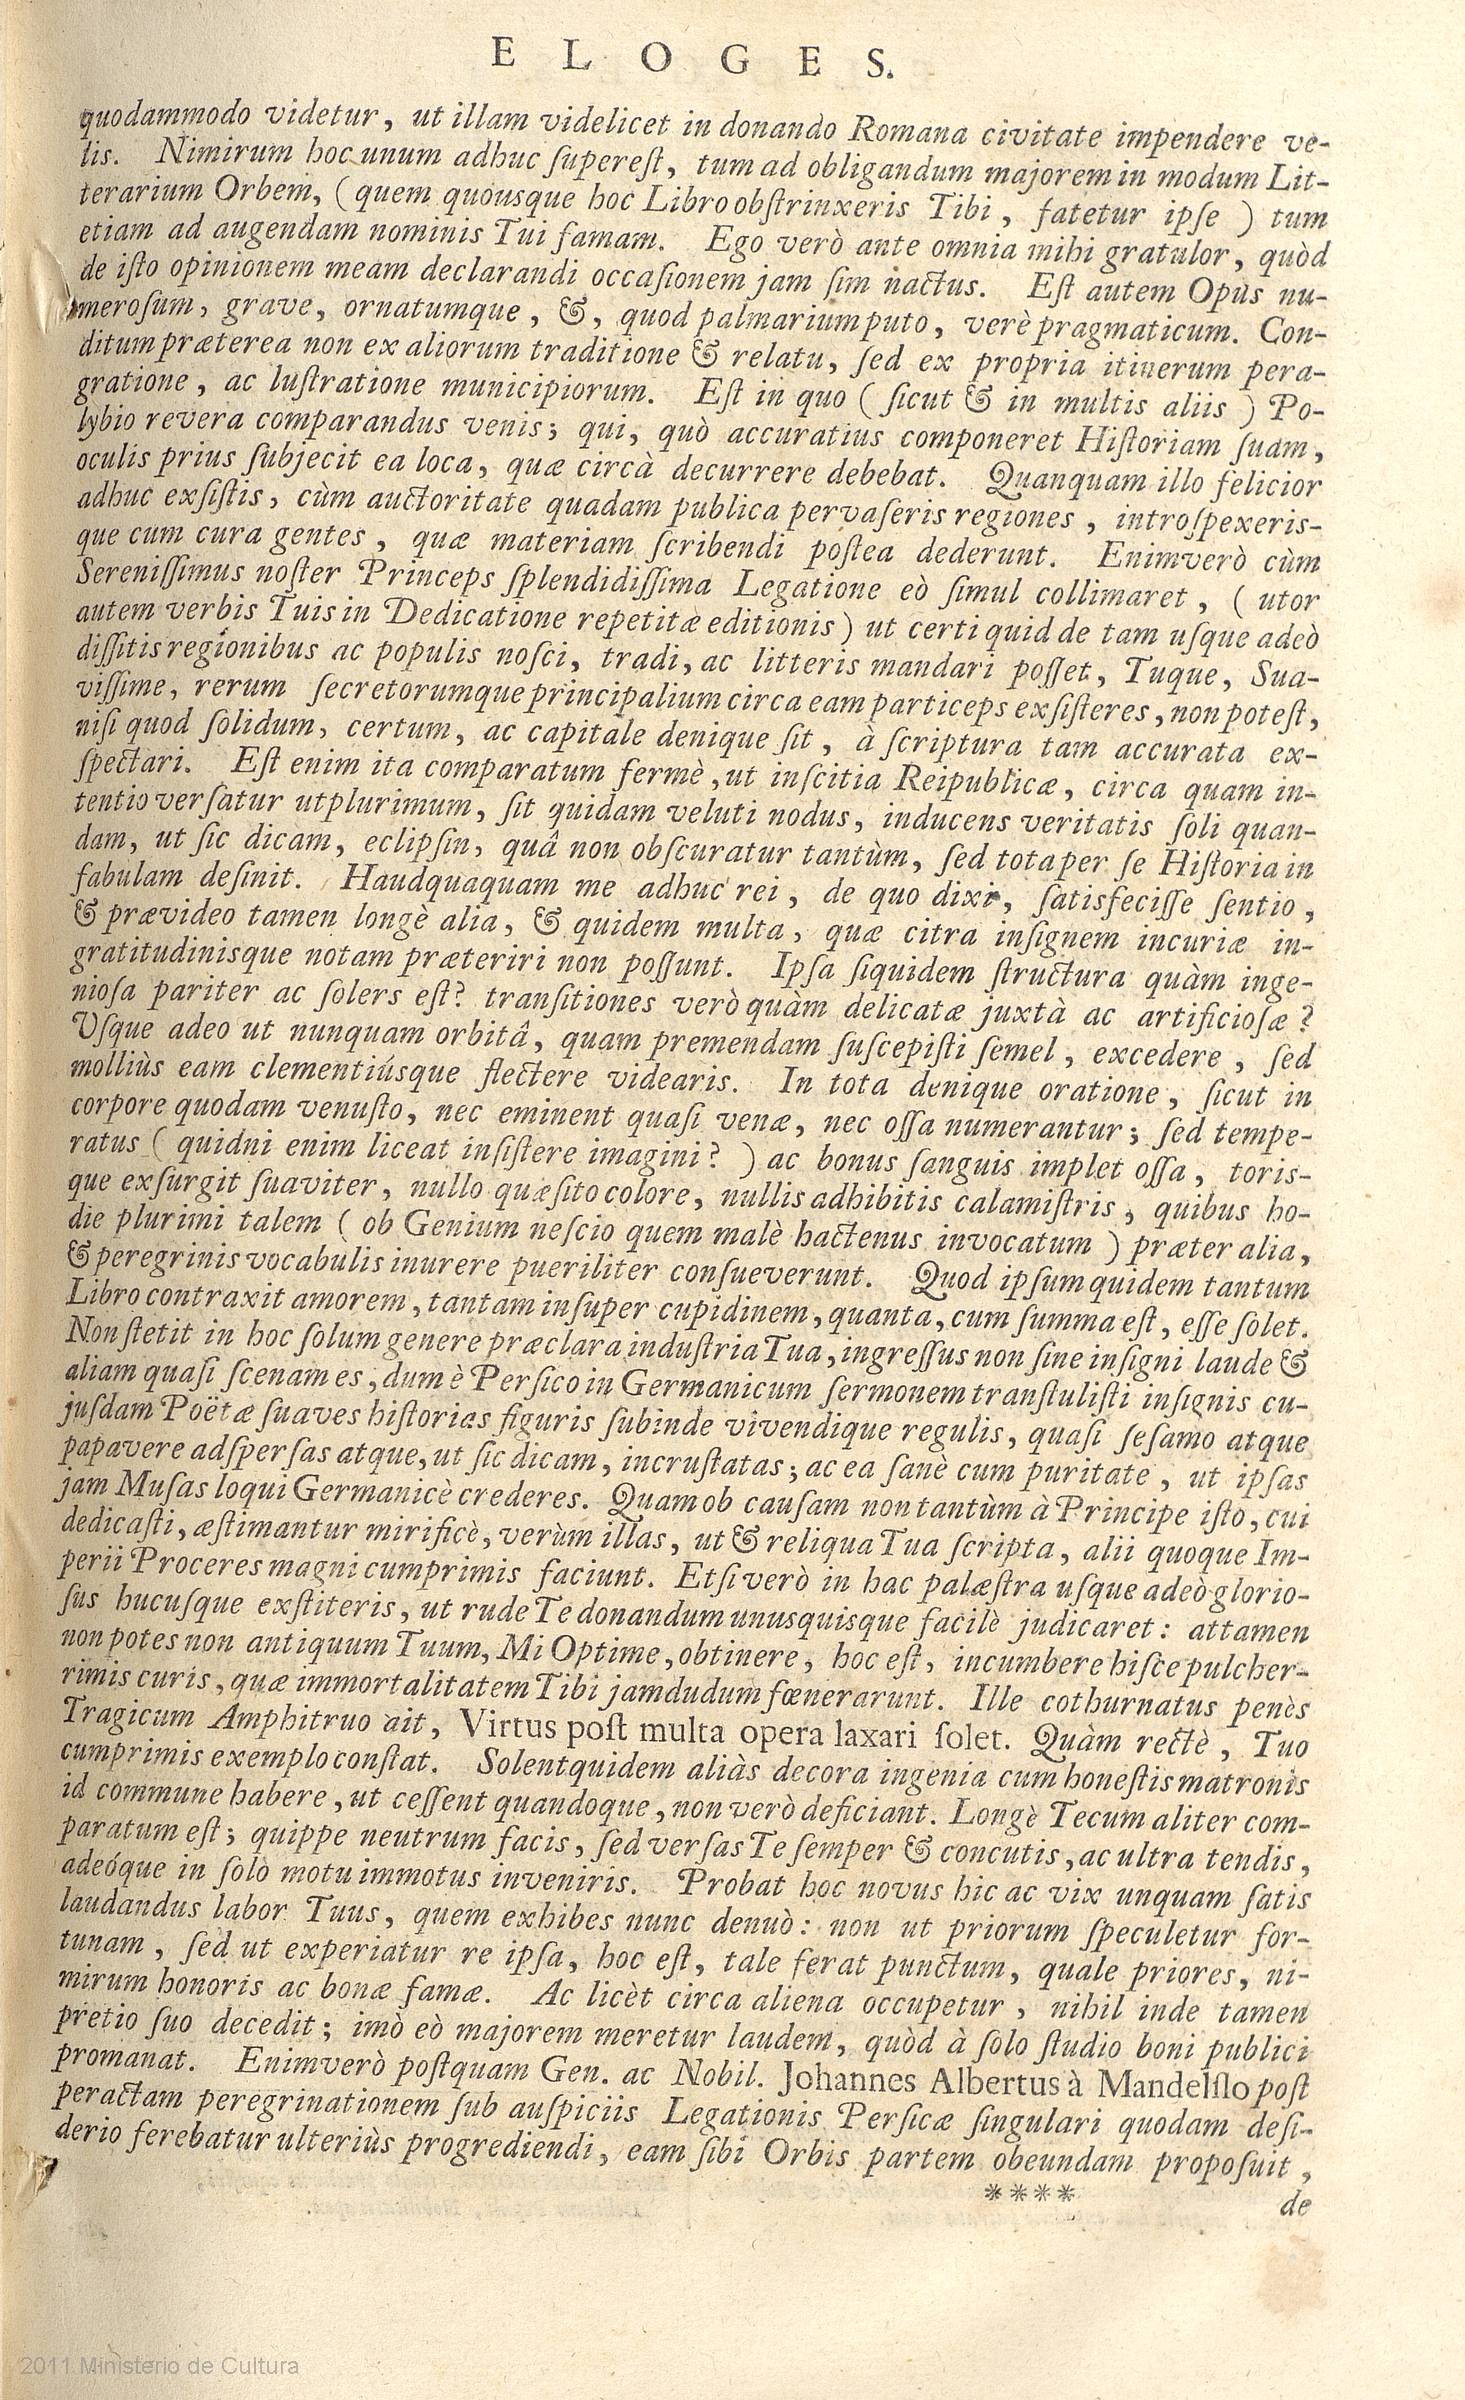 ELOGES.
quodammodo videtur, ut illam videlicet in donando Romana civitate impendere ve-
lis. Nimirum hoc unum adhuc ſupereſt, tum ad obligandum majorem in modum Lit-
terarium Orbem, (quem quousque hoc Libro obſtrinxeris Tibi, fatetur ipſe) tum
etiam ad augendam nominis Tui famam. Ego verò ante omnia mihi gratulor, quòd
de iſto opinionem meam declarandi occaſionem jam ſim nactus. Eſt autem Opus nu-
meroſum, grave, ornatumque, &, quod palmarium puto, verè pragmaticum. Con-
ditum præterea non ex aliorum traditione & relatu, ſed ex propria itinerum pera-
gratione, ac luſtratione municipiorum. Eſt in quo (ſicut & in multis aliis) Po-
lybio revera comparandus venis; qui, quò accuratius componeret Hiſtoriam ſuam,
oculis prius ſubjecit ea loca, quæ circà decurrere debebat. Quanquam illo felicior
adhuc exſiſtis, cùm auctoritate quadam publica pervaſeris regiones, introſpexeris-
que cum cura gentes, quæ materiam ſcribendi poſtea dederunt. Enimverò cùm
Sereniſſimus noſter Princeps ſplendidiſſima Legatione eò ſimul collimaret, (utor
autem verbis Tuis in Dedicatione repetitæ editionis) ut certi quid de tam uſque adeò
diſſitis regionibus ac populis noſci, tradi, ac litteris mandari poſſet, Tuque, Sua-
viſſime, rerum ſecretorumque principalium circa eam particeps exſiſteres, non poteſt,
niſi quod ſolidum, certum, ac capitale denique ſit, à ſcriptura tam accurata ex-
ſpectari. Eſt enim ita comparatum fermè, ut inſcitia Reipublicæ, circa quam in-
tentio verſatur utplurimum, ſit quidam veluti nodus, inducens veritatis ſoli quan-
dam, ut ſic dicam, eclipſin, quâ non obſcuratur tantùm, ſed tota per ſe Hiſtoria in
fabulam deſinit. Haudquaquam me adhuc rei, de quo dixi, ſatisfeciſſe ſentio,
& prævideo tamen longè alia, & quidem multa, quæ citra inſignem incuriæ in-
gratitudinisque notam præteriri non poſſunt. Ipſa ſiquidem ſtructura quàm inge-
nioſa pariter ac ſolers eſt? tranſitiones verò quàm delicatæ juxtà ac artificioſæ?
Vſque adeo ut nunquam orbitâ, quam premendam ſuſcepiſti ſemel, excedere, ſed
molliùs eam clementiúsque flectere videaris. In tota denique oratione, ſicut in
corpore quodam venuſto, nec eminent quaſi venæ, nec oſſa numerantur; ſed tempe-
ratus (quidni enim liceat inſiſtere imagini?) ac bonus ſanguis implet oſſa, toris-
que exſurgit ſuaviter, nullo quæſito colore, nullis adhibitis calamiſtris, quibus ho-
die plurimi talem (ob Genium neſcio quem malè hactenus invocatum) præter alia,
& peregrinis vocabulis inurere pueriliter conſueverunt. Quod ipſum quidem tantum
Libro contraxit amorem, tantam inſuper cupidinem, quanta, cum ſumma eſt, eſſe ſolet.
Non ſtetit in hoc ſolum genere præclara induſtria Tua, ingreſſus non ſine inſigni laude &
aliam quaſi ſcenam es, dum è Perſico in Germanicum ſermonem tranſtuliſti inſignis cu-
juſdam Poëtæ ſuaves hiſtorias figuris ſubinde vivendique regulis, quaſi ſeſamo atque
papavere adſperſas atque, ut ſic dicam, incruſtatas; ac ea ſanè cum puritate, ut ipſas
jam Muſas loqui Germanicè crederes. Quam ob cauſam non tantùm à Principe iſto, cui
dedicaſti, æſtimantur mirificè, verùm illas, ut & reliqua Tua ſcripta, alii quoque Im-
perii Proceres magni cumprimis faciunt. Etſi verò in hac palæſtra uſque adeò glorio-
ſus hucuſque exſtiteris, ut rude Te donandum unusquisque facilè judicaret: attamen
non potes non antiquum Tuum, Mi Optime, obtinere, hoc eſt, incumbere hiſce pulcher-
rimis curis, quæ immortalitatem Tibi jamdudum fœnerarunt. Ille cothurnatus penès
Tragicum Amphitruo ait, Virtus poſt multa opera laxari ſolet. Quàm rectè, Tuo
cumprimis exemplo conſtat. Solent quidem aliàs decora ingenia cum honeſtis matronis
id commune habere, ut ceſſent quandoque, non verò deficiant. Longè Tecum aliter com-
paratum eſt; quippe neutrum facis, ſed verſas Te ſemper & concutis, ac ultra tendis,
adeóque in ſolo motu immotus inveniris. Probat hoc novus hic ac vix unquam ſatis
laudandus labor Tuus, quem exhibes nunc denuò: non ut priorum ſpeculetur for-
tunam, ſed ut experiatur re ipſa, hoc eſt, tale ferat punctum, quale priores, ni-
mirum honoris ac bonæ famæ. Ac licèt circa aliena occupetur, nihil inde tamen
pretio ſuo decedit; imò eò majorem meretur laudem, quòd à ſolo ſtudio boni publici
promanat. Enimverò poſtquam Gen. ac Nobil. Johannes Albertus à Mandelſlo poſt
peractam peregrinationem ſub auſpiciis Legationis Perſicæ ſingulari quodam deſi-
derio ferebatur ulteriùs progrediendi, eam ſibi Orbis partem obeundam propoſuit,
**** de
2011 Ministerio de Cultura